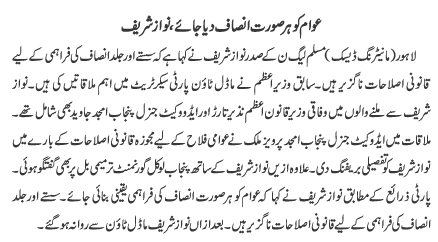 عوام کو ہر صورت انصاف دیا جائے، نواز شریف
لاہور (مانیٹرنگ ڈیسک) مسلم لیگ ن کے صدر نواز شریف نے کہا ہے کہ سستے اور جلد انصاف کی فراہمی کے لیے
قانونی اصلاحات ناگزیر ہیں۔ سابق وزیر اعظم نے ماڈل ٹاؤن پارٹی سیکرٹریٹ میں اہم ملاقاتیں کی ہیں۔ نواز
شریف سے ملنے والوں میں وفاقی وزیر قانون اعظم نذیر تارڑ اور ایڈووکیٹ جنرل پنجاب امجد جاوید بھی شامل تھے۔
ملاقات میں ایڈووکیٹ جنرل پنجاب امجد پرویز ملک نے عوامی فلاح کے لیے مجوزہ قانونی اصلاحات کے بارے میں
نواز شریف کو تفصیلی بریفنگ دی۔ علاوہ ازیں نواز شریف کے ساتھ پنجاب لوکل گورنمنٹ ترمیمی بل پر بھی گفتگو ہوئی۔
پارٹی ذرائع کے مطابق نواز شریف نے کہا کہ عوام کو ہر صورت انصاف کی فراہمی یقینی بنائی جائے۔ سستے اور جلد
انصاف کی فراہمی کے لیے قانونی اصلاحات ناگزیر ہیں۔ بعد ازاں نواز شریف ماڈل ٹاؤن سے روانہ ہو گئے۔